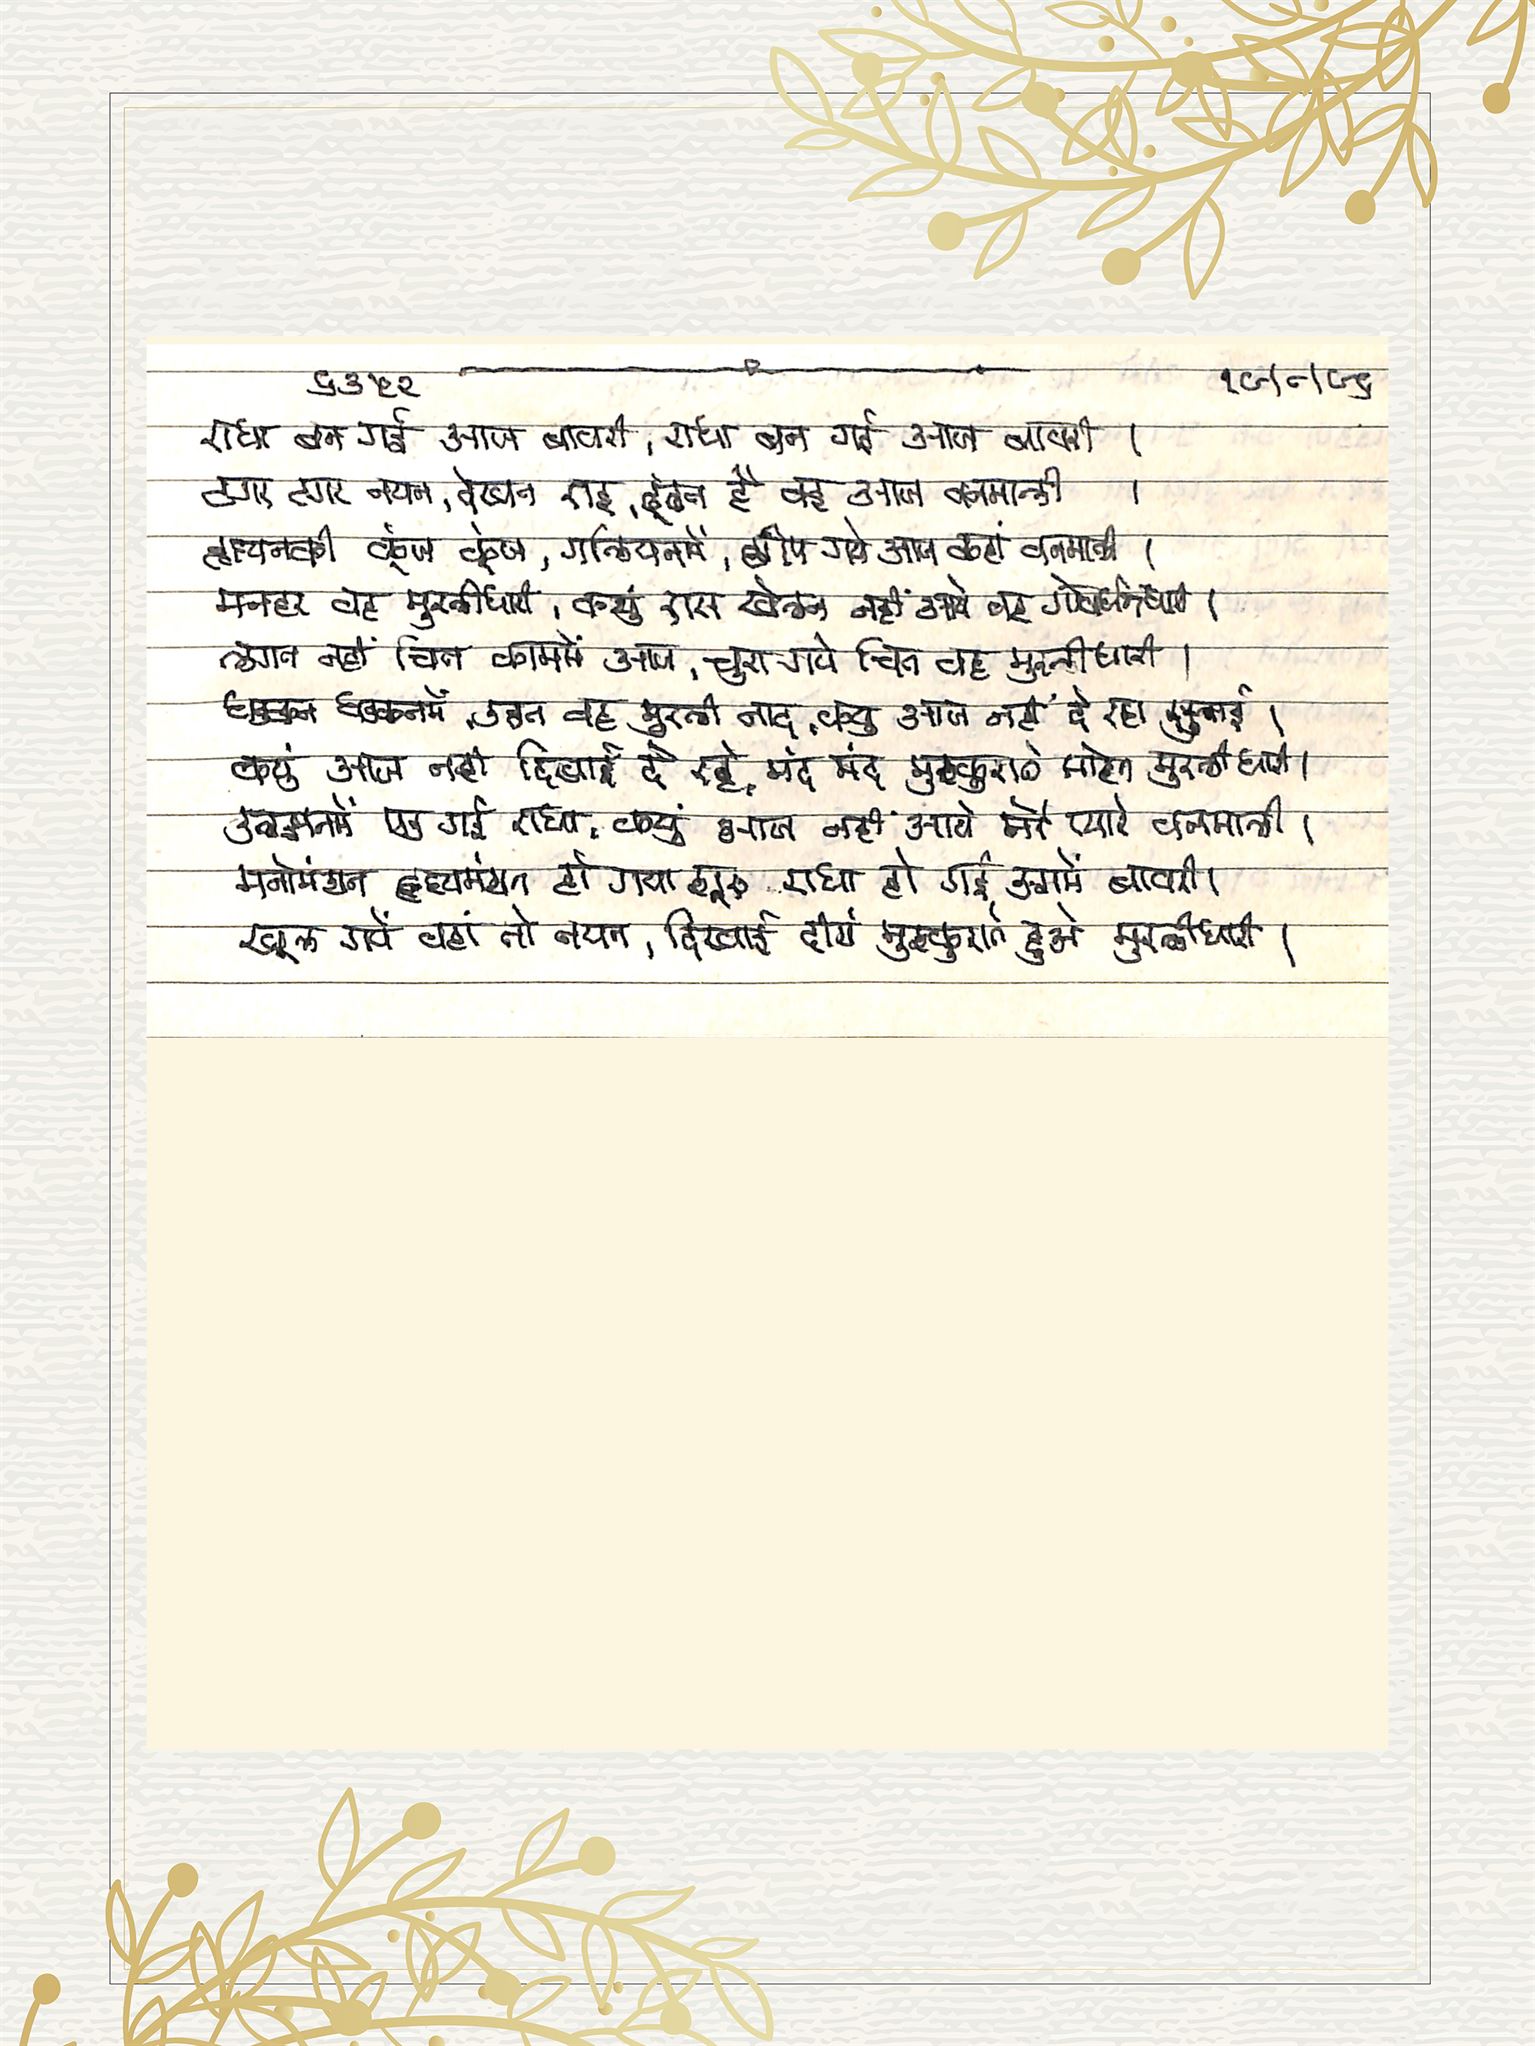 राधा बन गई आज बावरी, राधा बन गई आज बावरी ।
टगर टगर नयन, देखत राह, ढूंढत है वह आज वनमाली ।
कूंज कूंज, गलियनमें, छीप गये आज कहां वनमाली ।
मनहर वह मुरलीधारी, कयुं रास खेलन नहीं आये वह गोवर्धनधारी ।
लगत नहीं चित काममें आज, चुरा गये चित वह मुरलीधारी ।
धडकन धडकनमें, उठत वह मुरली नाद, कयु आज नहीं दे रहा सुनाई ।
कयुं आज नहीं दिखाई दे रहे, मंद मंद मुस्कुराते मोहन मुरलीधारी ।
उलझनमें पड गई राधा, कयुं आज नहीं आये मेरे प्यारे वनमाली ।
मनोमंथन हृदयमंथन हो गया शुरु राधा हो गई उसमें बावरी ।
खूल गयें वहां तो नयन, दिखाई दीये मुस्कुराते हुअे मुरलीधारी ।